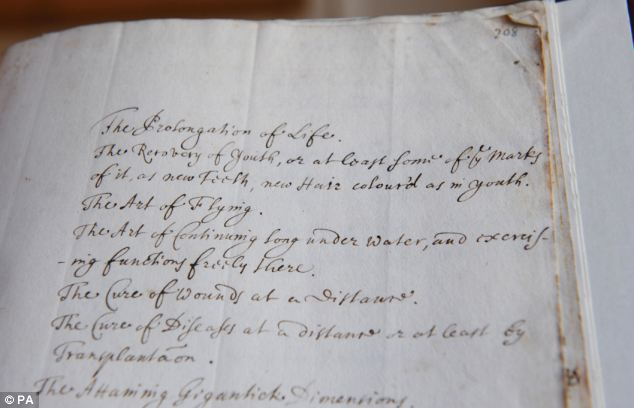 208
The Prolongation of Life.
The Recovery of Youth, or at least some of yͤ Marks
of it, as new Teeth, new Hair colour'd as in youth.
The Art of Flying.
The Art of Continuing long under water, and exercis-
-ing functions freely there.
The Cure of Wounds at a Distance.
The Cure of Diseases at a distance or at least by
Transplantãon.
The Attaining Gigantick Dimensions.
© PA